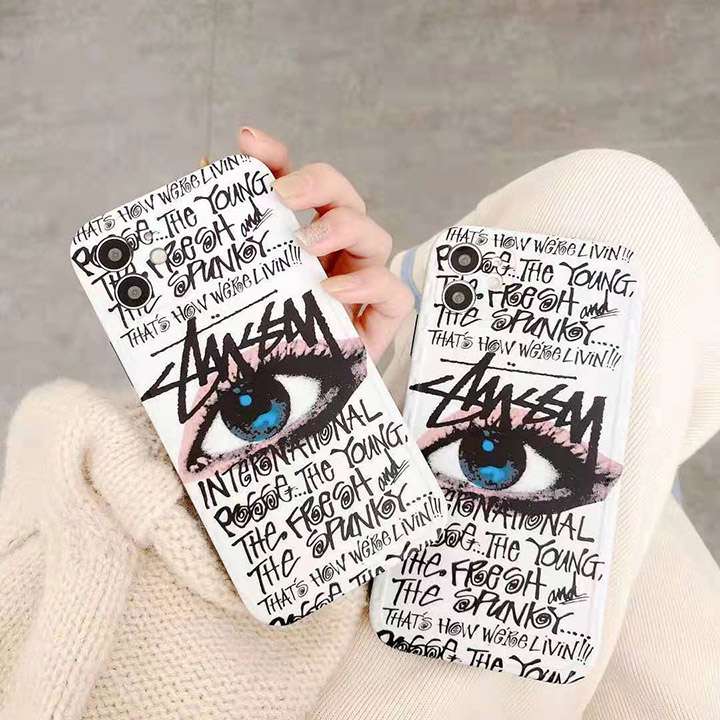 THAT'S HOW WE'RE LIVIN'!!!
POSSE...THE YOUNG,
THE FRESH and
THE SPUNKY.....
THAT'S HOW WE'RE LIVIN'!!!
STÜSSY
INTERNATIONAL
POSSE...THE YOUNG,
THE FRESH and
THE SPUNKY.....
THAT'S HOW WE'RE LIVIN'!!!
POSSE THE YOUNG
THAT'S HOW WE'RE LIVIN'!!!
POSSE...THE YOUNG,
THE FRESH and
THE SPUNKY.....
THAT'S HOW WE'RE LIVIN'!!!
STÜSSY
INTERNATIONAL
POSSE...THE YOUNG,
THE FRESH and
THE SPUNKY.....
THAT'S HOW WE'RE LIVIN'!!!
POSSE THE YOUNG